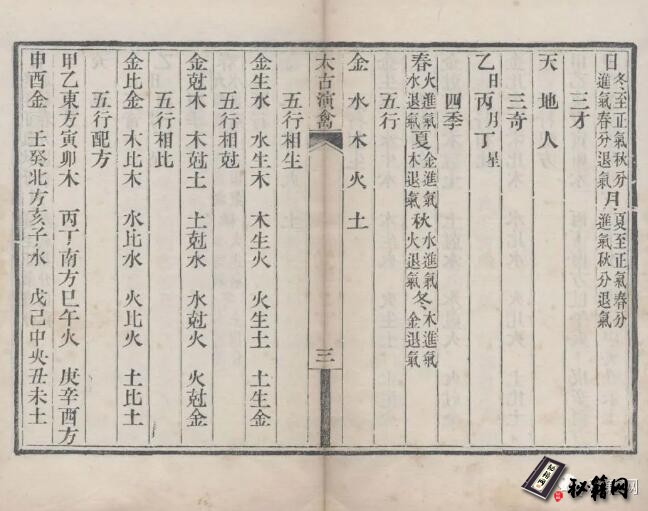 日 冬至正氣秋分進氣春分退氣 月 夏至正氣春分進氣秋分退氣
三才
天 地 人
三奇
乙日 丙月 丁星
四季
春 火進氣水退氣 夏 金進氣木退氣 秋 水進氣火退氣 冬 木進氣金退氣
五行
金 水 木 火 土
太古演禽 三
五行相生
金生水 水生木 木生火 火生土 土生金
五行相尅
金尅木 木尅土 土尅水 水尅火 火尅金
五行相比
金比金 木比木 水比水 火比火 土比土
五行配方
甲乙東方寅卯木 丙丁南方巳午火 庚辛酉方
申酉金 壬癸北方亥子水 戊己中央丑未土
秘籍网